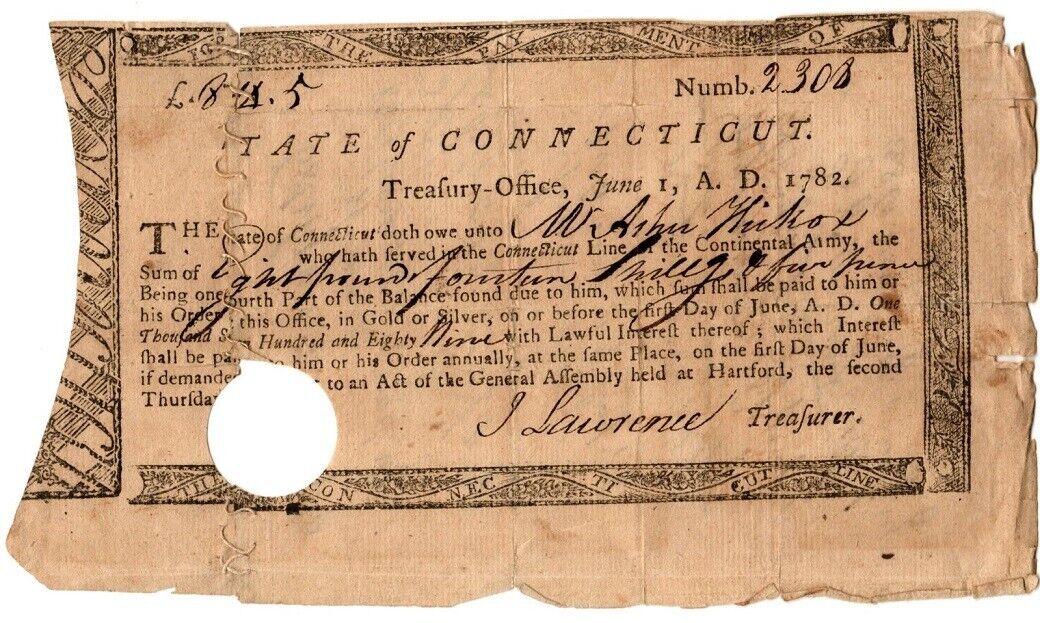 FOR THE PAY MENT OF
£.8 14.5 Numb. 2308
TATE of CONNECTICUT.
Treaſury-Office, June 1, A. D. 1782.
THE tate of Connecticut doth owe unto Mr Asher Hickox
who hath ſerved in the Connecticut Line of the Continental Army, the
Sum of Eight pound fourteen Shillgs & five pence
Being one fourth Part of the Balance found due to him, which ſum ſhall be paid to him or
his Order this Office, in Gold or Silver, on or before the firſt Day of June, A. D. One
Thouſand Hundred and Eighty Nine with Lawful Intereſt thereof ; which Intereſt
ſhall be pai to him or his Order annually, at the ſame Place, on the firſt Day of June,
if demande to an Act of the General Aſſembly held at Hartford, the ſecond
Thurſda
J Lawrence Treaſurer.
TH CON NEC TI CUT LINE